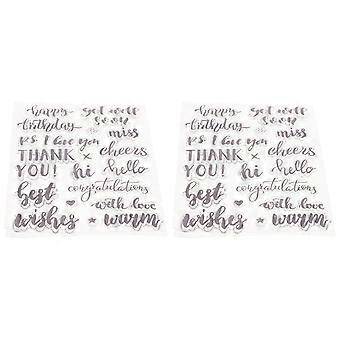 happy
birthday
get well
soon
miss
P.S. I love you
THANK
YOU!
x
cheers
hi
hello
congratulations
best
wishes
with love
warm
happy
birthday
get well
soon
miss
P.S. I love you
THANK
YOU!
x
cheers
hi
hello
congratulations
best
wishes
with love
warm